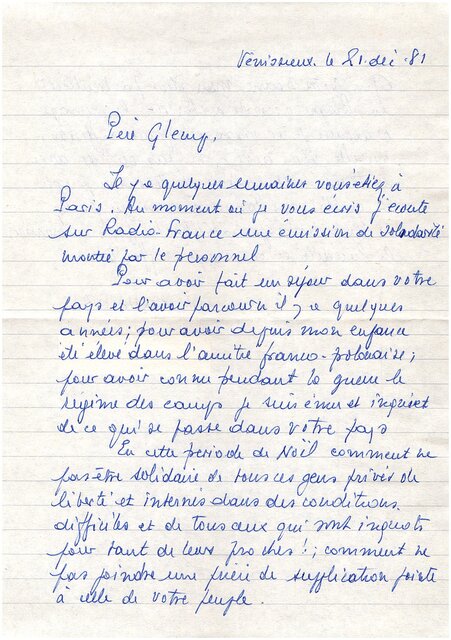 Vénissieux le 21. déc. 81
Père Glemp,
Il y a quelques semaines vous étiez à
Paris. Au moment où je vous écris j'écoute
sur Radio-France une émission de solidarité
montée par le personnel
Pour avoir fait un séjour dans votre
pays et l'avoir parcouru il y a quelques
années; pour avoir depuis mon enfance
été élevé dans l'amitié franco-polonaise;
pour avoir connu pendant la guerre le
régime des camps je suis ému et inquiet
de ce qui se passe dans votre pays
En cette période de Noël comment ne
pas être solidaire de tous ces gens privés de
liberté et internés dans des conditions
difficiles et de tous ceux qui sont inquiets
pour tant de leurs proches!; comment ne
pas joindre une prière de supplication
à celle de votre peuple.